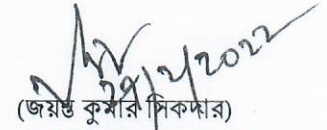 ২৪/২/২০২২
(জয়ন্ত কুমার সিকদার)